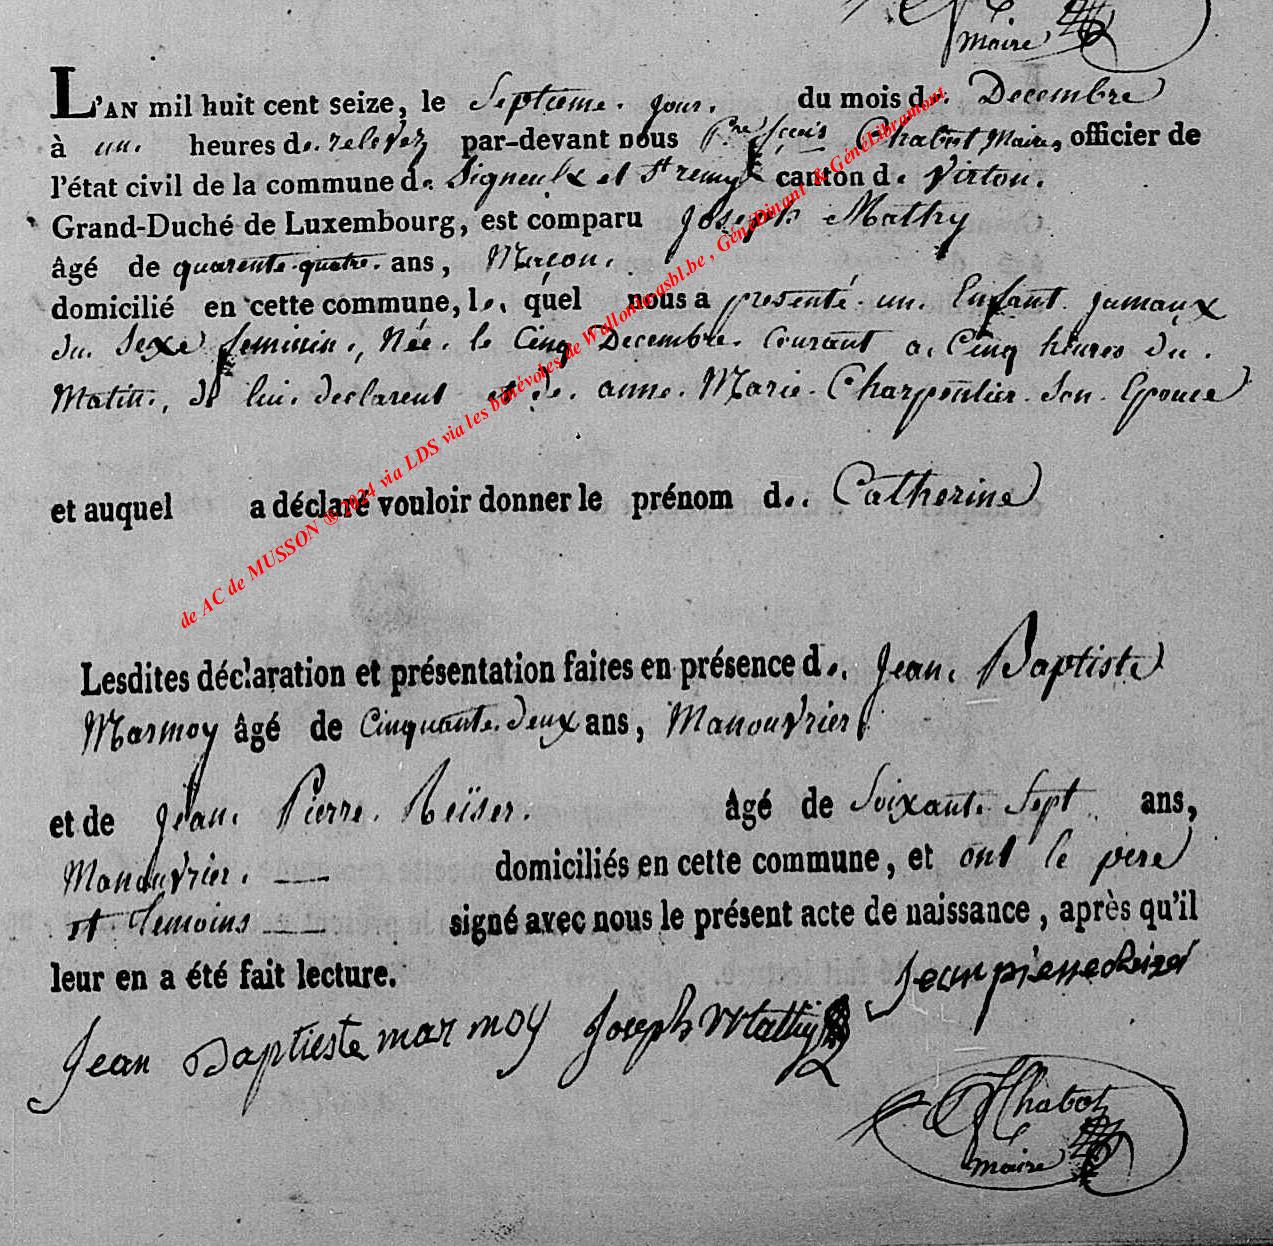 Maire
L'AN mil huit cent seize, le Septieme. jour. du mois de. Decembre
à un. heures de. relevez par-devant nous Pre fçois Chabot Maire, officier de
l'état civil de la commune de. Signeulx et St remy canton de. Virton.
Grand-Duché de Luxembourg, est comparu Joseph Mathy
âgé de quarente-quatre. ans, Maçon.
domicilié en cette commune, le. quel nous a presenté. un. Enfant jumaux
du. Sexe feminin., Née. le Cinq Decembre. Courant a. Cinq heures du.
Matin., de lui. declarent et de. anne. Marie. Charpentier. Son. Epouce
et auquel a déclaré vouloir donner le prénom de. Catherine
Lesdites déclaration et présentation faites en présence de. Jean. Baptiste
Marmoy âgé de Cinquante. deux ans, Manouvrier.
et de Jean. Pierre. Reïser. âgé de Soixante. Sept. ans,
Manouvrier. domiciliés en cette commune, et ont le pere
et temoins signé avec nous le présent acte de naissance, après qu'il
leur en a été fait lecture.
Jean pierre Reizer
Jean Baptieste marmoy Joseph Mathy
Chabot
maire
de AC de MUSSON ® 2024 via LDS via les bénévoles de Wallonia-asbl.be , GénéDinant & GénéLibramont